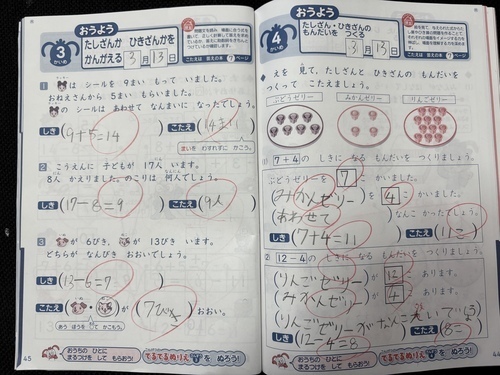 おうよう
3
かいめ
たしざんか ひきざんかを
かんがえる
3月13日
こたえは 答えの本 7 ページ
1 は シールを 9まい もって いました。
おねえさんから 5まい もらいました。
の シールは あわせて なんまいに なったでしょう。
しき (9+5=14)
こたえ (14まい)
まいを わすれずに かこう。
2 こうえんに 子どもが 17人 います。
8人 かえりました。のこりは 何人でしょう。
しき (17-8=9)
こたえ (9人)
3 が 6ぴき、 が 13びき います。
どちらが なんびき おおいでしょう。
しき (13-6=7)
こたえ ( ・ )が (7ひき) おおい。
あう ほうを ○で かこもう。
45
おうちの ひとに
まるつけを して もらおう!
てるてるぬりえ を ぬろう!
おうよう
4
かいめ
たしざん・ひきざんの
もんだいを つくる
3月13日
こたえは 答えの本 7 ページ
えを 見て、たしざんと ひきざんの もんだいを
つくって こたえましょう。
ぶどうゼリー みかんゼリー りんごゼリー
(1) 7+4 の しきに なる もんだいを つくりましょう。
ぶどうゼリーを 7 こ
(みかんゼリー)を 4 こ かいました。
(あわせて) なんこ かったでしょう。
しき (7+4=11) こたえ (11こ)
(2) 12-4 の しきに なる もんだいを つくりましょう。
(りんごゼリー)が 12 こ あります。
(みかんゼリー)が 4 こ あります。
(12-4=8) (8こ)
おうちの ひとに
まるつけを して もらおう!
てるてるぬりえ を ぬろう!